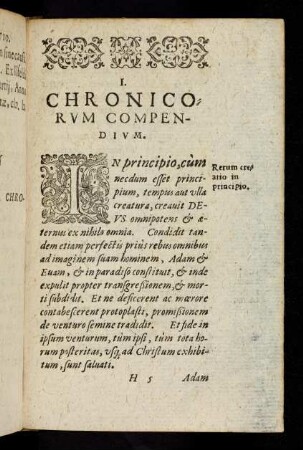 I.
CHRONICO-
RVM COMPEN-
DIVM.
IN principio, cùm
necdum esset princi-
pium, tempus aut vlla
creatura, creauit DE-
VS omnipotens & æ-
ternus ex nihilo omnia. Condidit tan-
dem etiam perfectis priùs rebus omnibus
ad imaginem suam hominem, Adam &
Euam, & in paradiso constituit, & inde
expulit propter transgressionem, & mor-
ti subdidit. Et ne deficerent ac mœrore
contabescerent protoplasti, promissionem
de venturo semine tradidit. Et fide in
ipsum venturum, tùm ipsi, tùm tota ho-
rum posteritas, vsq; ad Christum exhibi-
tum, sunt saluati.
Rerum cre-
atio in
principio.
H 5 Adam
CHRO-